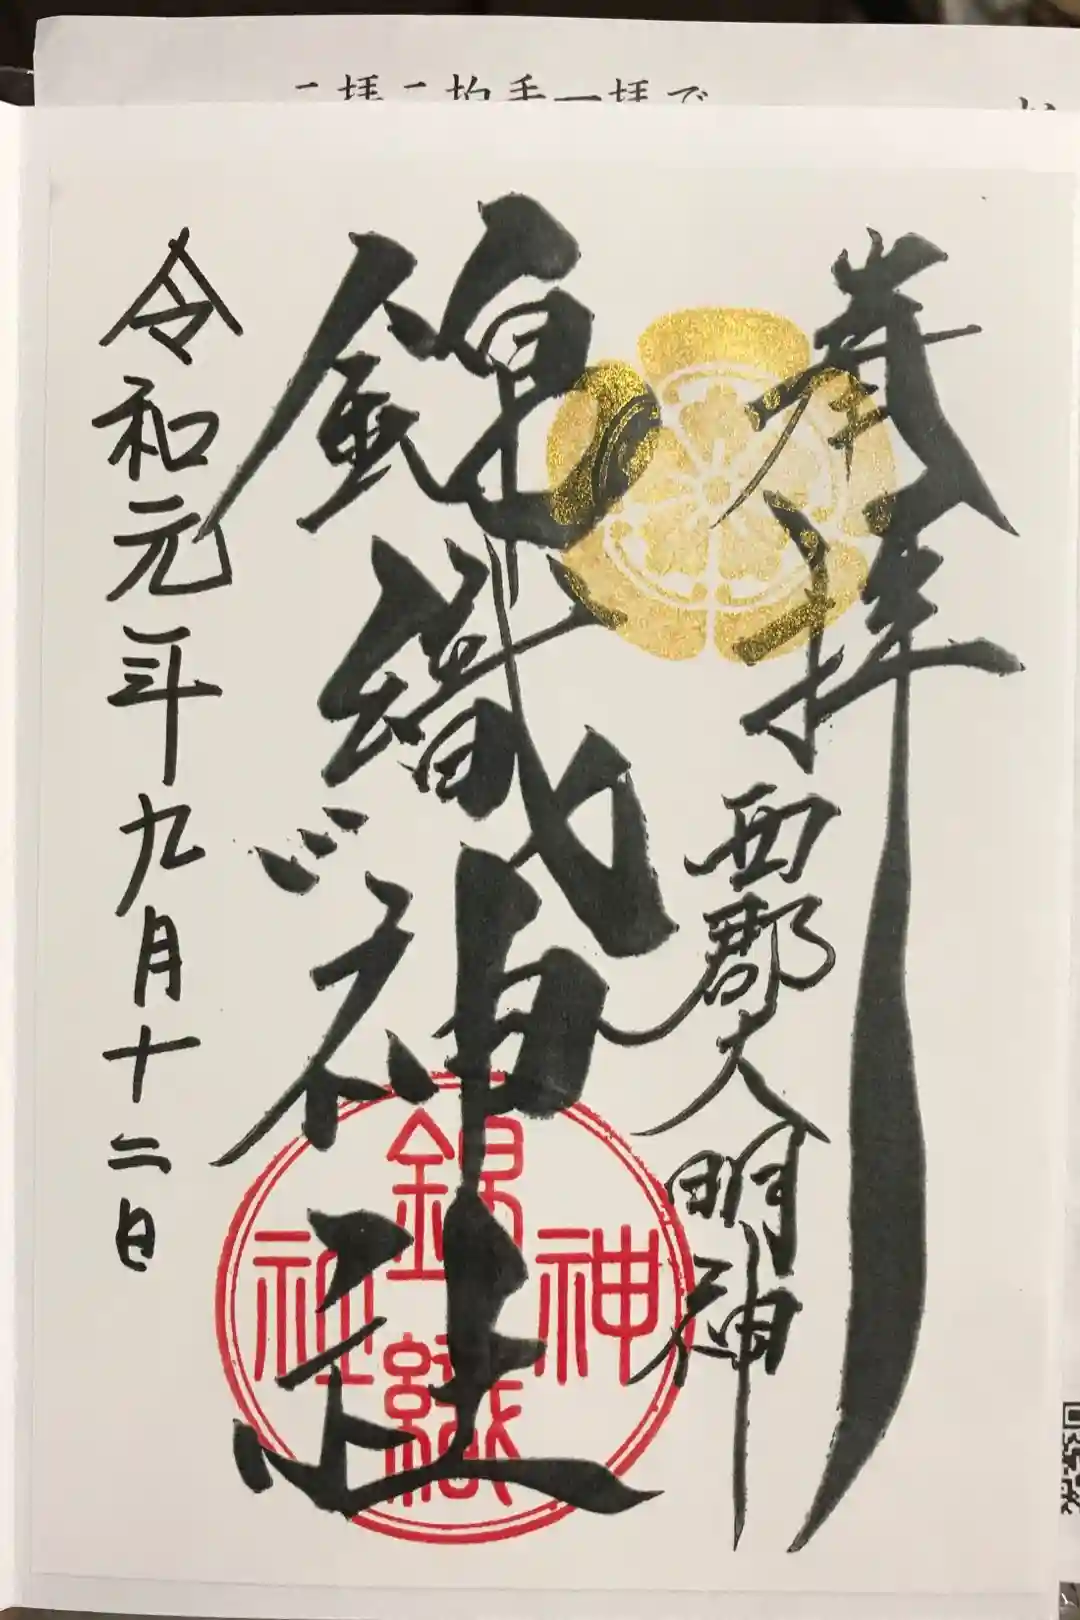 奉拝
西郡大明神
錦織神社
令和元年九月十二日
錦織神社
二拝二拍手一拝で